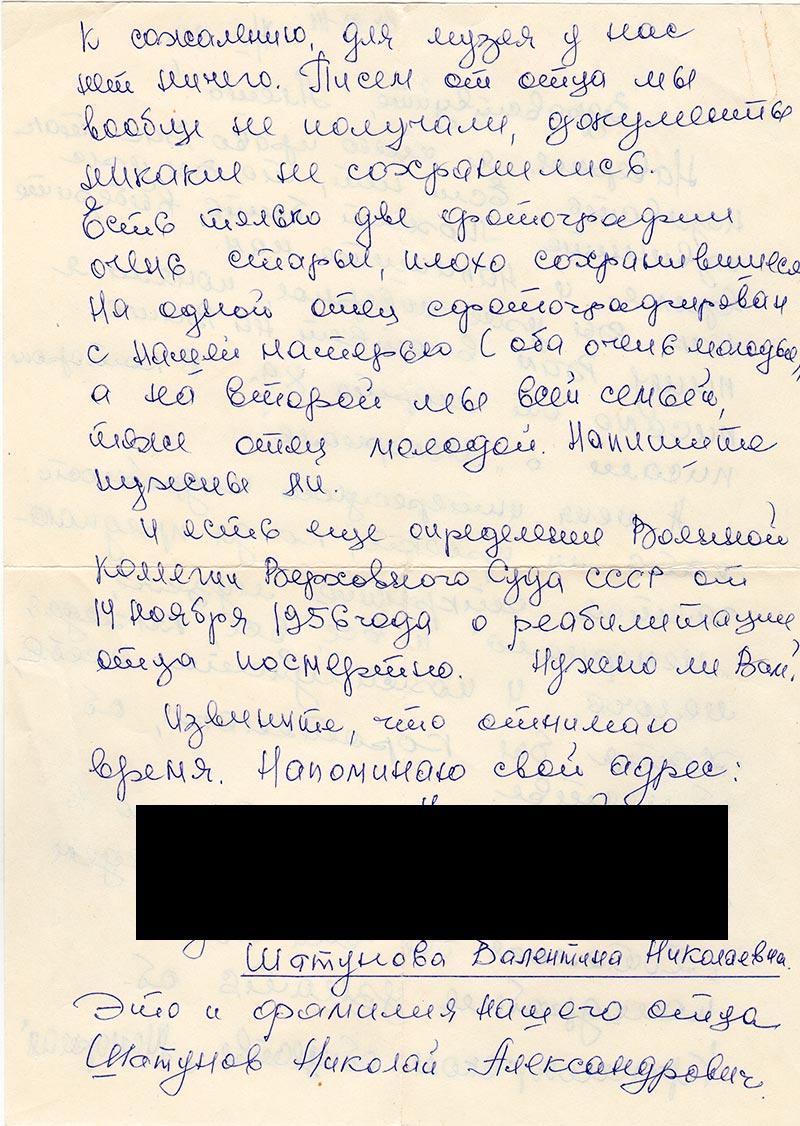 К сожалению, для музея у нас
нет ничего. Писем от отца мы
вообще не получали, документы
никакие не сохранились.
Есть только две фотографии
очень старые, плохо сохранившиеся
На одной отец сфотографирован
с нашей матерью (оба очень молодые),
а на второй мы всей семьей,
тоже отец молодой. Напишите
нужны ли.
И есть еще определение Военной
коллегии Верховного Суда СССР от
14 ноября 1956 года о реабилитации
отца посмертно. Нужно ли Вам?
Извините, что отнимаю
время. Напоминаю свой адрес:
Шатунова Валентина Николаевна.
Это и фамилия нашего отца
Шатунов Николай Александрович.